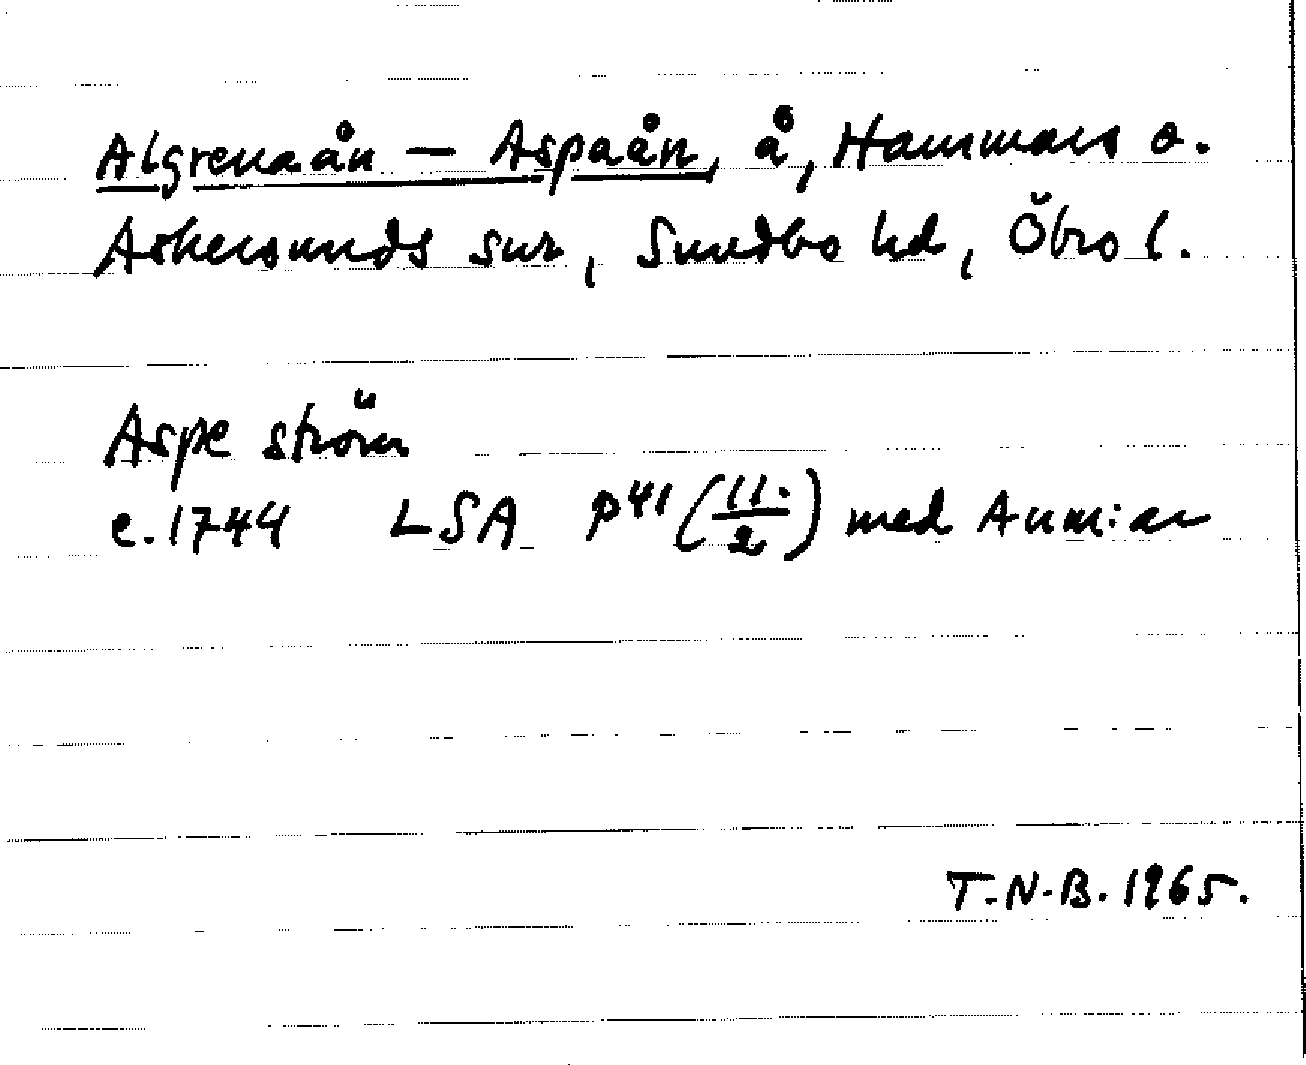 Algrenaån — Aspaån, å, Hammars o.
Askersunds snr, Sundbo hd, Öbro l.
Aspe ström
c. 1744 LSA P41 (11:/2) med Anm:ar
T.N.B. 1965.